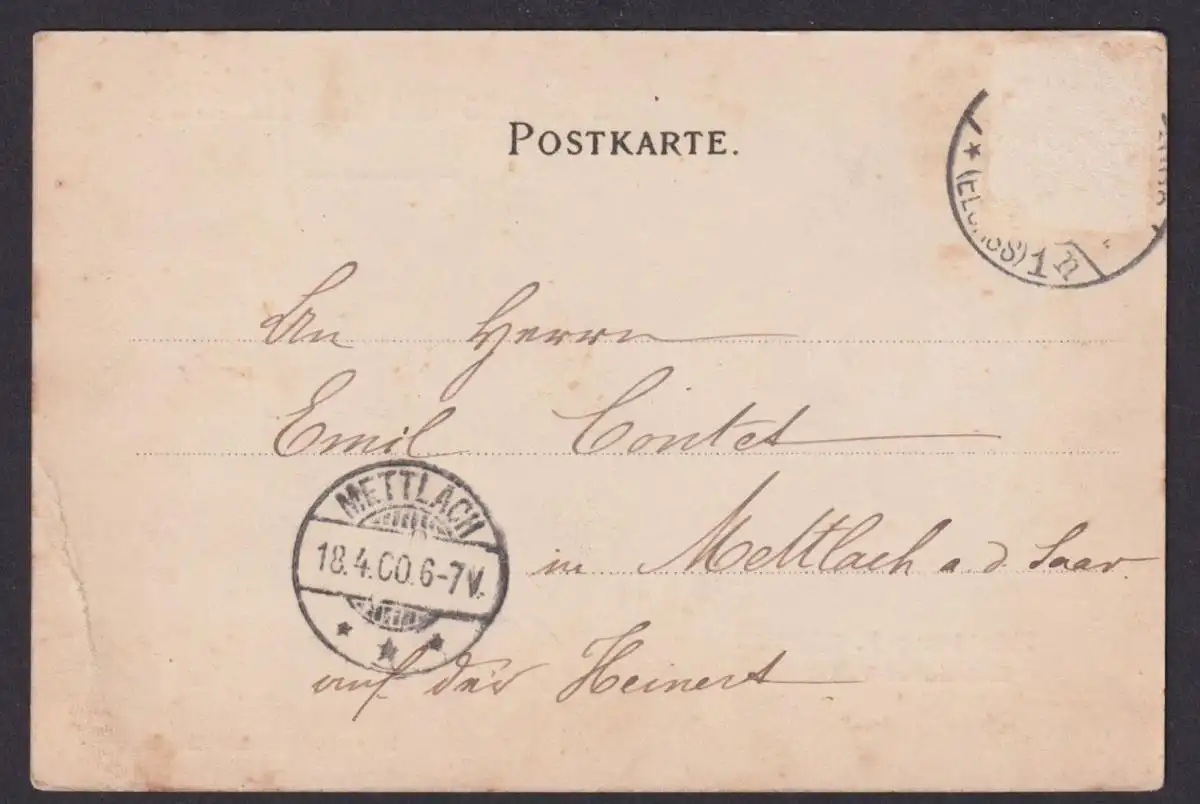 POSTKARTE.
1 n
An Herrn
Emil Contet
METTLACH
18.4.00.6-7V.
in Mettlach a. d. Saar.
auf der Heinert